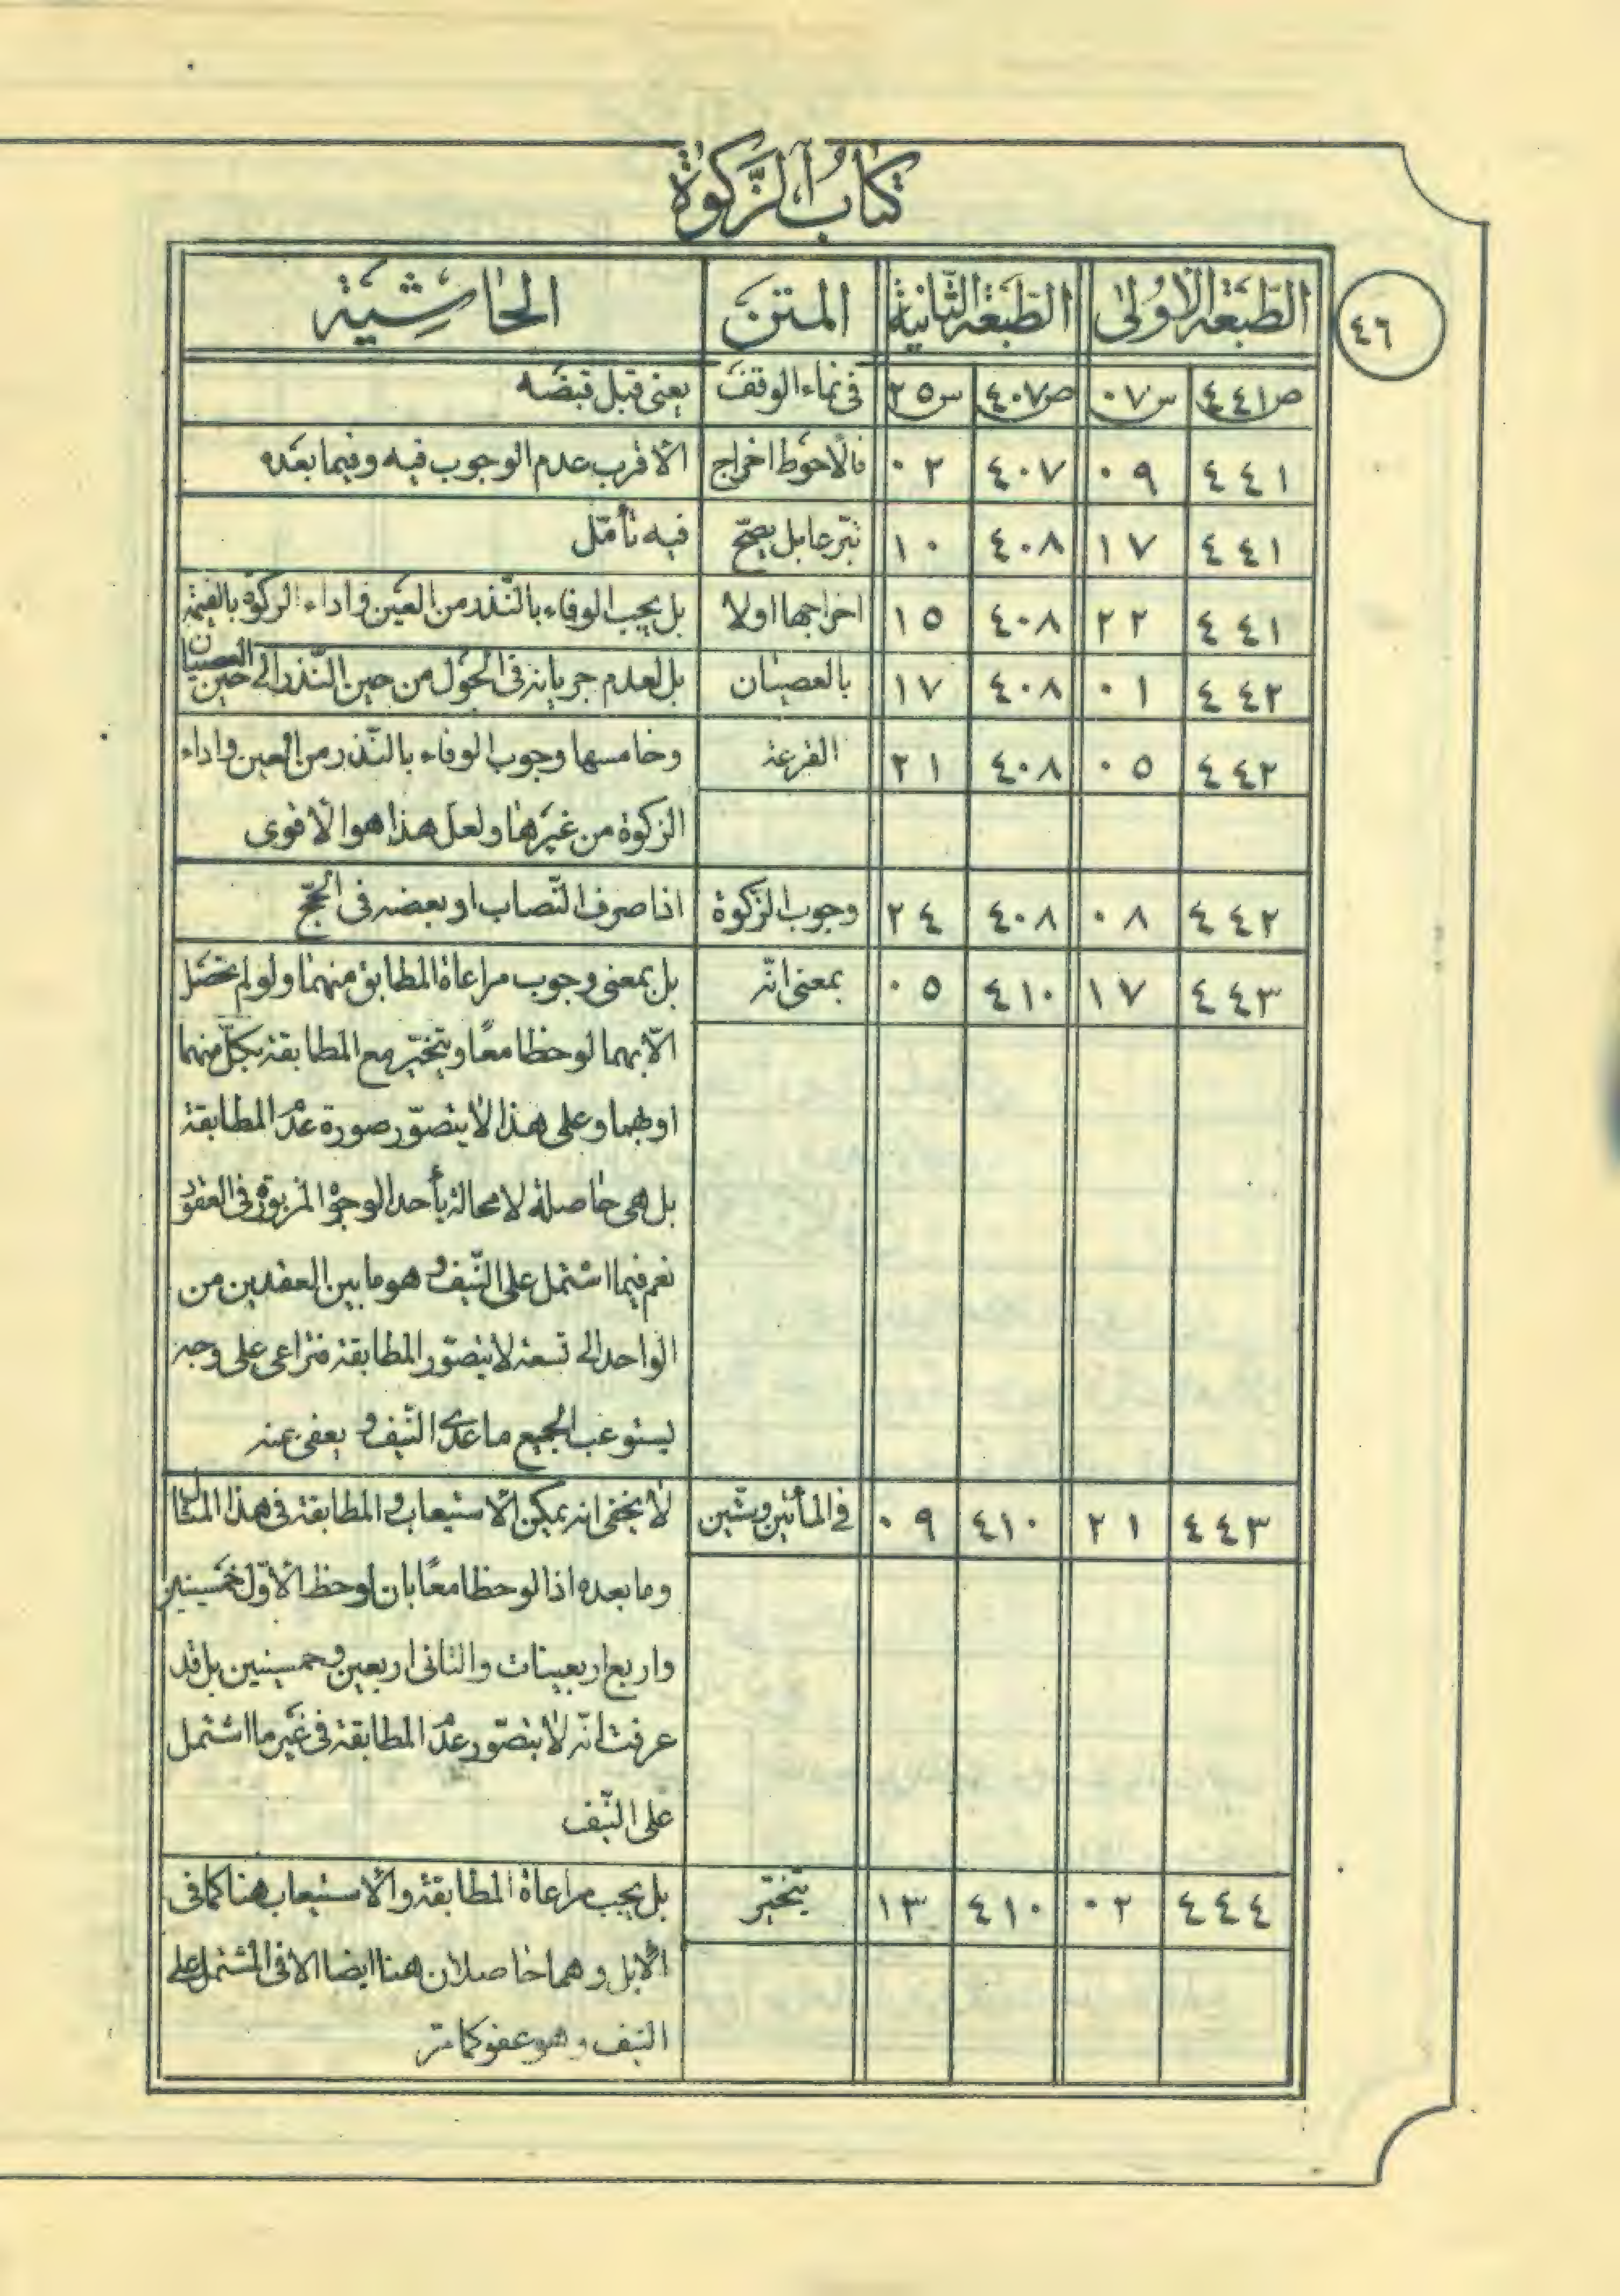 كتاب الزكوة
٤٦
الطبعة الاولى الطبعة الثانية المتن الحاشية
ص٤٤١ س٠٧ ص٤٠٧ س٢٥ في نماء الوقف يعنى قبل قبضه
٤٤١ ٠٩ ٤٠٧ ٠٢ فالاحوط اخراج الاقرب عدم الوجوب فيه وفيما بعده
٤٤١ ١٧ ٤٠٨ ١٠ تبرعا بل يصحّ فيه تأمّل
٤٤١ ٢٢ ٤٠٨ ١٥ اخراجها اولا بل يجب الوفاء بالنّذر من العين واداء الزكوة بالقيمة
٤٤٢ ٠١ ٤٠٨ ١٧ بالعصيان بل لعدم جريانه في الحول من حين النّذر الى حين العصيان
٤٤٢ ٠٥ ٤٠٨ ٢١ القرعة وخامسها وجوب الوفاء بالنّذر من العين واداء
الزكوة من غيرها ولعل هذا هو الاقوى
٤٤٢ ٠٨ ٤٠٨ ٢٤ وجوب الزّكوة اذا صرف النّصاب او بعضه في الحجّ
٤٤٣ ١٧ ٤١٠ ٠٥ بمعنى انّه بل بمعنى وجوب مراعاة المطابق منهما ولو لم تحصل
الّا بهما لوحظا معًا ويتخيّر مع المطابقة بكلّ منهما
او بهما وعلى هذا لا يتصوّر صورة عدم المطابقة
بل هي حاصلة لا محالة بأحد الوجوه المزبورة في العقود
نعم فيما اشتمل على النّيف وهو ما بين العقدين من
الواحد الى تسعة لا يتصوّر المطابقة فتراعى على وجه
يستوعب الجميع ما عدى النّيف ويعفى عنه
٤٤٣ ٢١ ٤١٠ ٠٩ في المأتين وستّين لا يخفى انه يمكن الاستيعاب والمطابقة في هذا المثال
وما بعده اذا لوحظا معًا بان لوحظ الاوّل خمسينين
واربع اربعينات والثانى اربعين وخمسينين بل قد
عرفت انّه لا يتصوّر عدم المطابقة في غير ما اشتمل
على النّيف
٤٤٤ ٠٢ ٤١٠ ١٣ يتخيّر بل يجب مراعاة المطابقة والاستيعاب هنا كما في
الابل وهما حاصلان هنا ايضا الا في المشتمل على
النيف وهو عفو كما مرّ